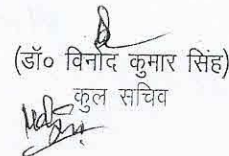 (डॉ० विनोद कुमार सिंह)
कुल सचिव